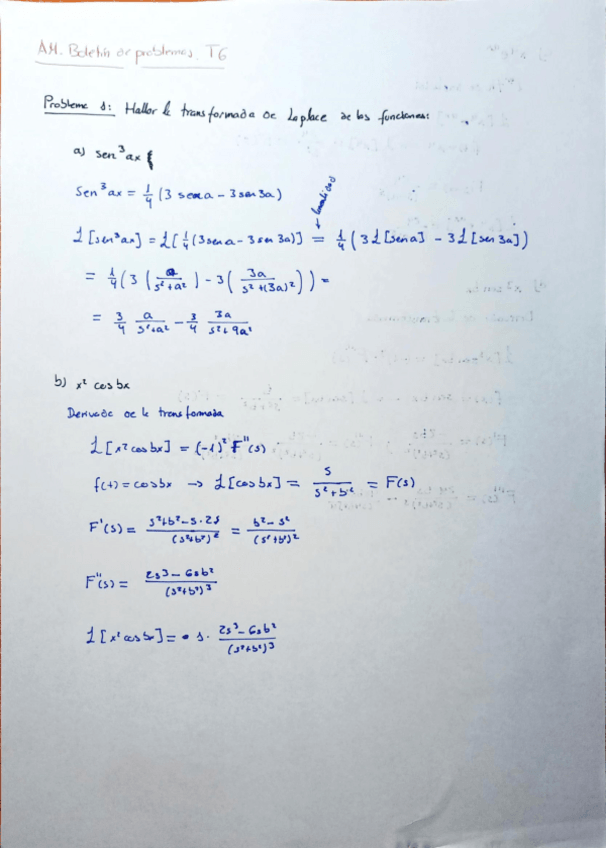 AM. Boletín de problemas. T6
Problema 1: Hallar la transformada de Laplace de las funciones:
a) sen³ax
Sen³ax = 1/4 (3 sena - 3sen3a)
linealidad
L[sen³ax] = L[1/4(3sena - 3sen3a)] = 1/4 (3L[sena] - 3L[sen3a])
= 1/4 (3 (a/(s²+a²)) - 3 (3a/(s²+(3a)²))) =
= 3/4 a/(s²+a²) - 3/4 3a/(s²+9a²)
b) x² cosbx
Derivada de la transformada
L[x²cosbx] = (-1)² F''(s)
f(t) = cosbx → L[cosbx] = s/(s²+b²) = F(s)
F'(s) = (s²+b²-s·2s)/(s²+b²)² = (b²-s²)/(s²+b²)²
F''(s) = (2s3-6sb²)/(s²+b²)³
L[x²cosbx] = 1· (2s³-6sb²)/(s²+b²)³